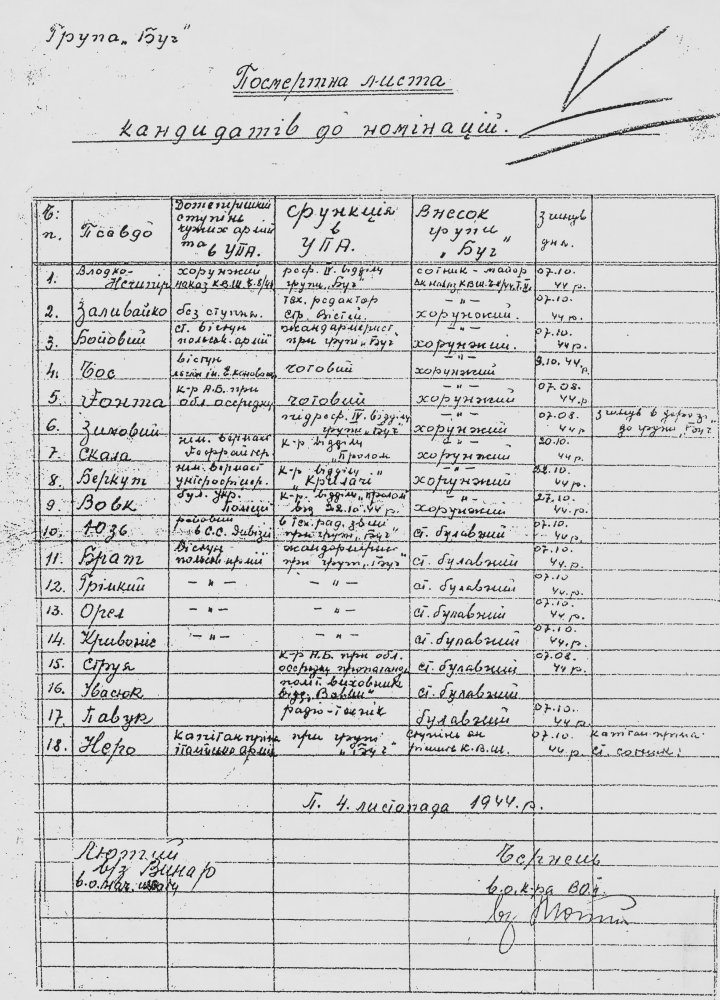 Група „Буг"
Посмертна листа
кандидатів до номінацій.
Ч. п. Псевдо Дотеперішний ступінь чужих армій та в УПА. Функція в УПА. Внесок групи „Буг" Згинув дня.
1. Владко- Нечигір хорунжий наказ К.В.Ш. ч. 8/44 реф. IV. відділу групи „Буг" сотник – майор 07.10. 44 р.
2. Заливайко без ступня. тех. редактор Стр. Вістей. – " – хорунжий. 07.10. 44 р.
3. Бойовий ст. вістун польськ. армії жандармерист при групі „Буг" – " – хорунжий. 07.10. 44 р.
4. Чос вістун чотовий – " – хорунжий 9.10. 44 р.
5. Гонта к-р А.Б. при обл. осередку чотовий – " – хорунжий 07.08. 44 р
6. Зимовий підреф. IV. відділу групи „Буг" – " – хорунжий 07.08. 44 р згинув в дорозі до групи „Буг"
7. Скала нім. к-р відділу „Пролом – " – хорунжий 20.10. 44 р.
8. Беркут нім. к-р відділу „Крилачі" – " – хорунжий 22.10. 44 р.
9. Вовк бул. укр. Поліції к-р. відділу „Пролом" від 22.10.44 р. – " – хорунжий 27.10. 44 р.
10. Юзь в С.С. Дивізії при групі „Буг" ст. булавний 07.10. 44 р.
11. Брат Вістун польськ. армії при групі „Буг" ст. булавний 07.10. 44 р.
12. Грімкий – " – – " – ст. булавний 07.10 44 р.
13. Орел – " – – " – ст. булавний 07.10. 44 р.
14. Кривоніс – " – – " – ст. булавний 07.10. 44 р.
15. Струя к-р А.Б. при обл. осередку пропаганди ст. булавний 07.08. 44 р.
16. Івасюк політ. виховник ст. булавний
17. Павук радіо-технік булавний 07.10. 44 р.
18. Неро Капітан при групі „Буг" ступінь К.В.Ш. 07.10. 44 р. капітан ст. сотник.
П. 4. листопада 1944. р.
Лютий
вз Винар
в.о. нач. штабу
Чернець
в.о. к-ра ВО й.
вз